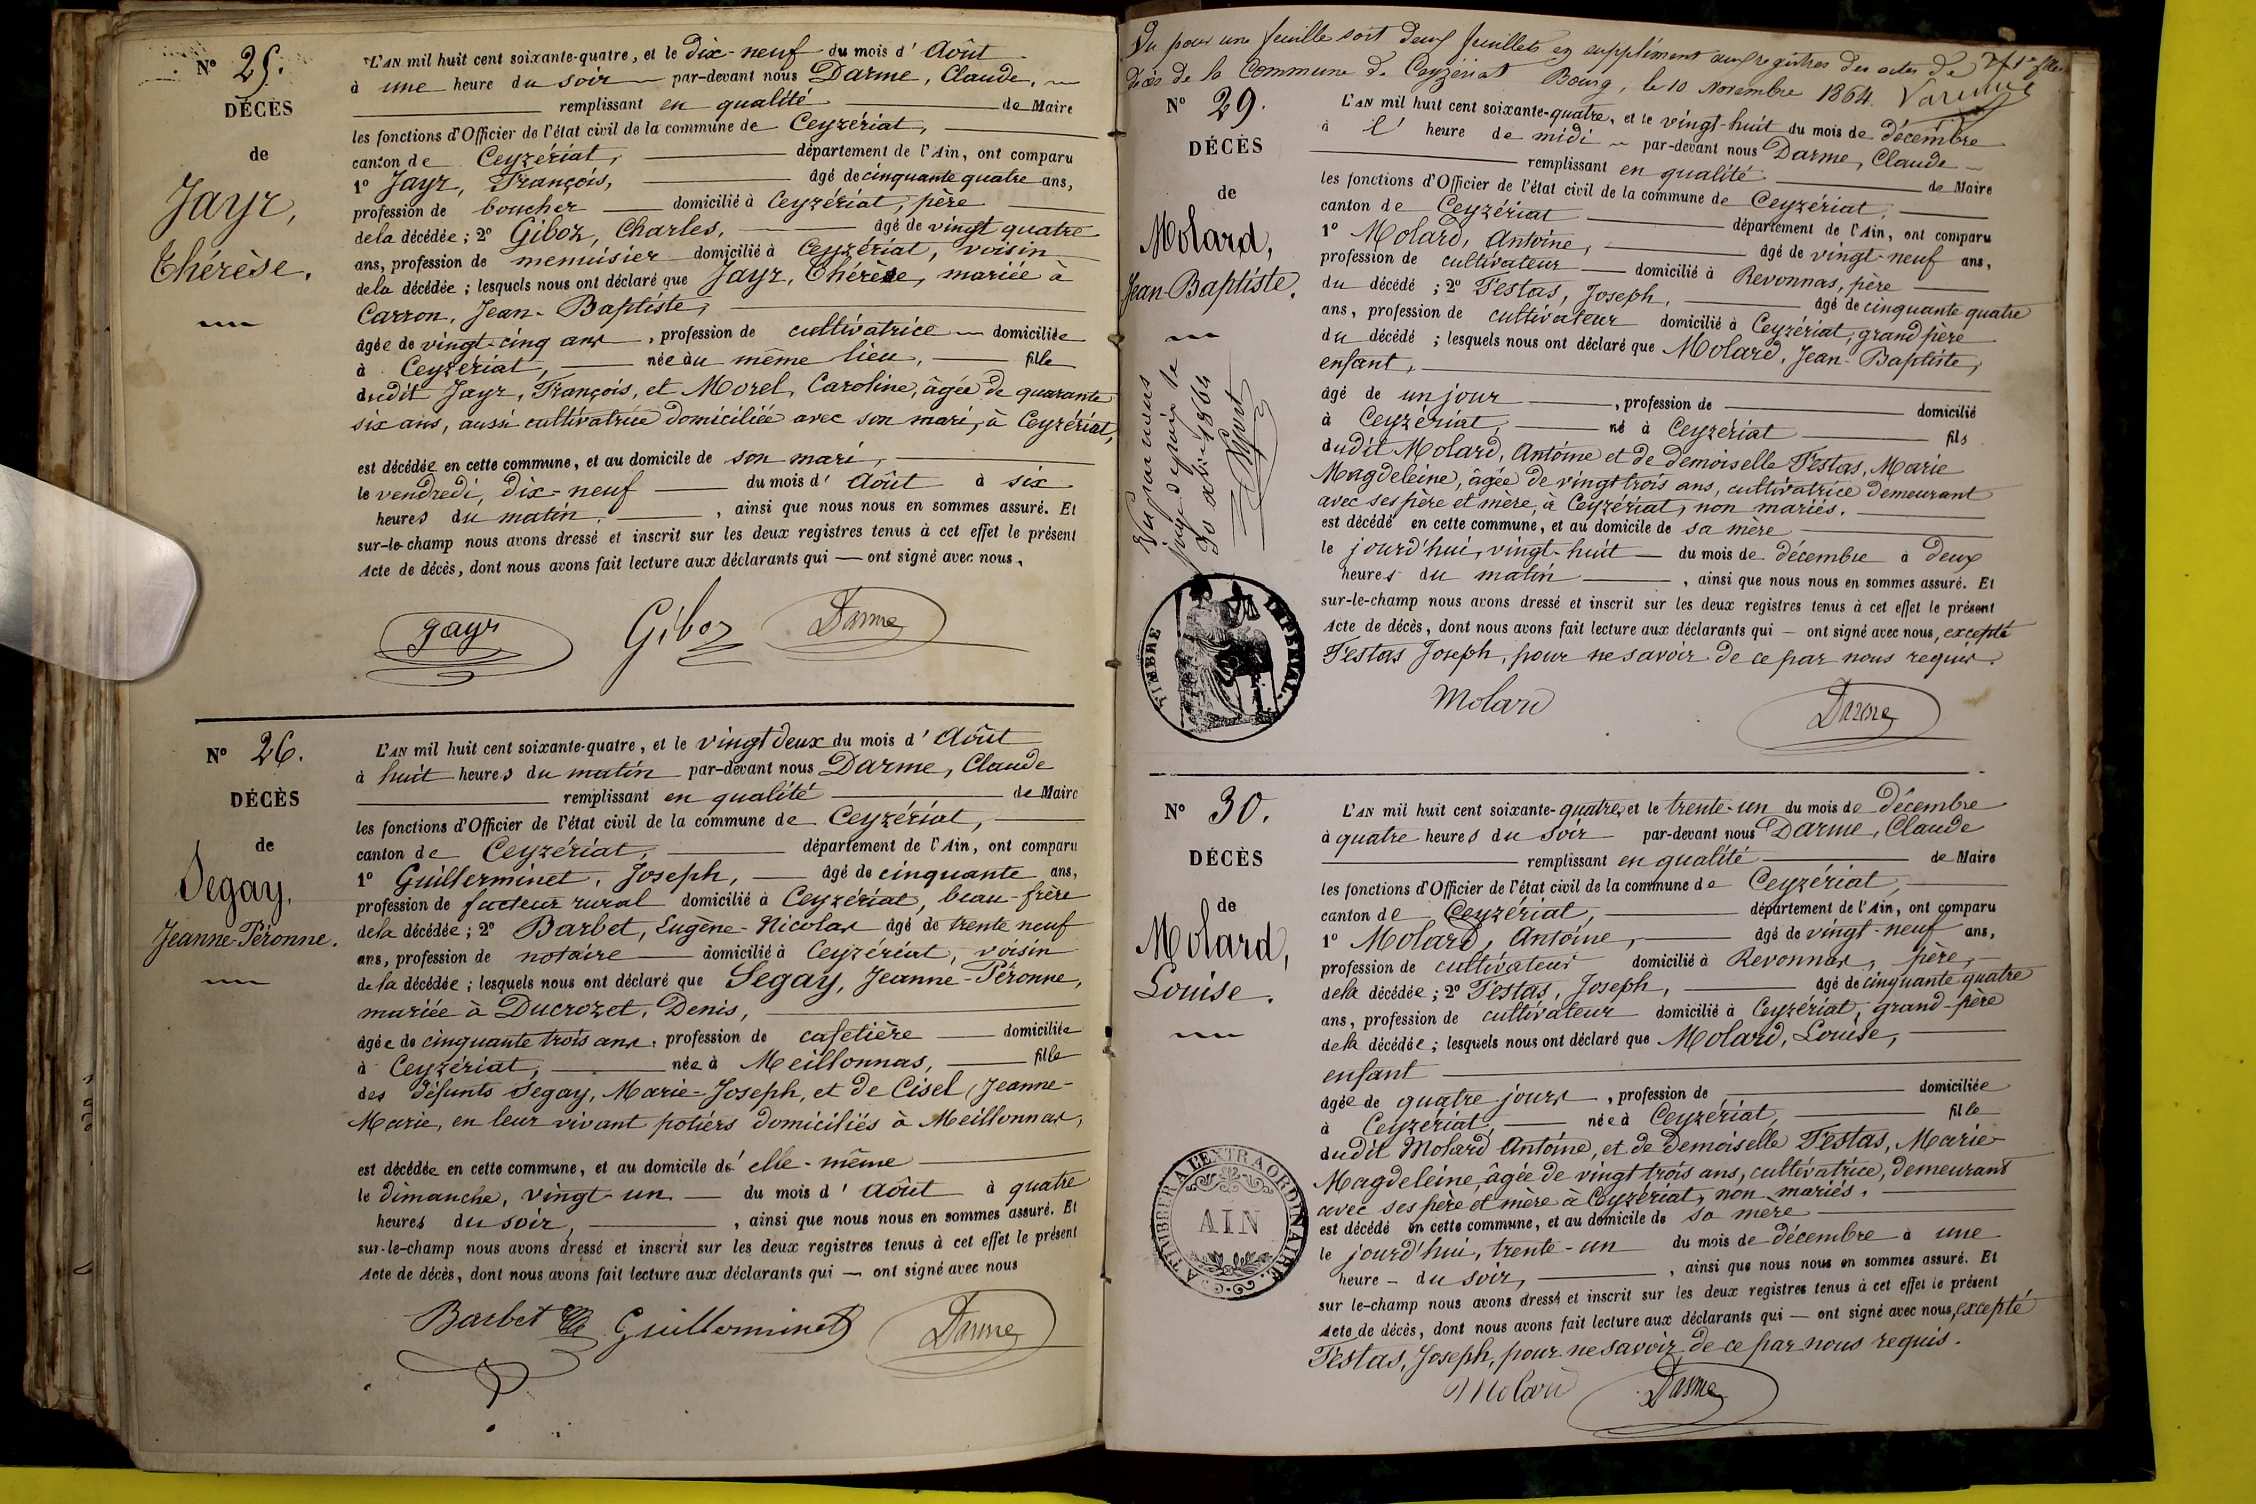 N° 25.
DÉCÈS
de
Jayr,
Thérèse.
L'AN mil huit cent soixante-quatre, et le dix-neuf du mois d'Août
à une heure du soir par-devant nous Darme, Claude,
remplissant en qualité de Maire
les fonctions d'Officier de l'état civil de la commune de Ceyzériat,
canton de Ceyzériat, département de l'Ain, ont comparu
1° Jayr, François, âgé de cinquante quatre ans,
profession de boucher domicilié à Ceyzériat, père
de la décédée ; 2° Giboz, Charles, âgé de vingt quatre
ans, profession de menuisier domicilié à Ceyzériat, voisin
de la décédée ; lesquels nous ont déclaré que Jayr, Thérèse, mariée à
Carron, Jean-Baptiste,
âgée de vingt-cinq ans, profession de cultivatrice domiciliée
à Ceyzériat, née au même lieu, fille
dudit Jayr, François, et Morel, Caroline, âgée de quarante
six ans, aussi cultivatrice domiciliée avec son mari, à Ceyzériat,
est décédée en cette commune, et au domicile de son mari,
le vendredi, dix-neuf du mois d'Août à six
heures du matin, ainsi que nous nous en sommes assuré. Et
sur-le-champ nous avons dressé et inscrit sur les deux registres tenus à cet effet le présent
Acte de décès, dont nous avons fait lecture aux déclarants qui — ont signé avec nous,
Jayr Giboz Darme
N° 26.
DÉCÈS
de
Segay,
Jeanne-Péronne.
L'AN mil huit cent soixante-quatre, et le vingt deux du mois d'Août
à huit heures du matin par-devant nous Darme, Claude
remplissant en qualité de Maire
les fonctions d'Officier de l'état civil de la commune de Ceyzériat,
canton de Ceyzériat, département de l'Ain, ont comparu
1° Guillerminet, Joseph, âgé de cinquante ans,
profession de facteur rural domicilié à Ceyzériat, beau-frère
de la décédée ; 2° Barbet, Eugène-Nicolas âgé de trente neuf
ans, profession de notaire domicilié à Ceyzériat, voisin
de la décédée ; lesquels nous ont déclaré que Segay, Jeanne-Péronne,
mariée à Ducrozet, Denis,
âgée de cinquante trois ans, profession de cafetière domiciliée
à Ceyzériat, née à Meillonnas, fille
des défunts Segay, Marie-Joseph, et de Cisel, Jeanne-
Marie, en leur vivant potiers domiciliés à Meillonnas,
est décédée en cette commune, et au domicile de elle-même
le dimanche, vingt-un du mois d'Août à quatre
heures du soir, ainsi que nous nous en sommes assuré. Et
sur-le-champ nous avons dressé et inscrit sur les deux registres tenus à cet effet le présent
Acte de décès, dont nous avons fait lecture aux déclarants qui — ont signé avec nous
Barbet Guillerminet Darme
Vu pour une feuille soit deux feuillets en supplément aux registres des actes de
décès de la Commune de Ceyzériat Bourg, le 10 Novembre 1864.
N° 29.
DÉCÈS
de
Molard,
Jean-Baptiste.
Vu par nous
juge de paix le
1864
TIMBRE IMPERIAL
L'AN mil huit cent soixante-quatre, et le vingt-huit du mois de décembre
à l'heure de midi par-devant nous Darme, Claude
remplissant en qualité de Maire
les fonctions d'Officier de l'état civil de la commune de Ceyzériat,
canton de Ceyzériat département de l'Ain, ont comparu
1° Molard, Antoine, âgé de vingt-neuf ans,
profession de cultivateur domicilié à Revonnas, père
du décédé ; 2° Festas, Joseph, âgé de cinquante quatre
ans, profession de cultivateur domicilié à Ceyzériat, grand père
du décédé ; lesquels nous ont déclaré que Molard, Jean-Baptiste,
enfant,
âgé de un jour, profession de domicilié
à Ceyzériat, né à Ceyzériat fils
dudit Molard, Antoine et de demoiselle Festas, Marie
Magdeleine, âgée de vingt trois ans, cultivatrice demeurant
avec ses père et mère, à Ceyzériat, non mariés.
est décédé en cette commune, et au domicile de sa mère
le jourd'hui, vingt-huit du mois de décembre à deux
heures du matin, ainsi que nous nous en sommes assuré. Et
sur-le-champ nous avons dressé et inscrit sur les deux registres tenus à cet effet le présent
Acte de décès, dont nous avons fait lecture aux déclarants qui — ont signé avec nous, excepté
Festas Joseph, pour ne savoir de ce par nous requis.
Molard Darme
N° 30.
DÉCÈS
de
Molard,
Louise.
A TIMBRER A L'EXTRAORDINAIRE
AIN
L'AN mil huit cent soixante-quatre, et le trente-un du mois de décembre
à quatre heures du soir par-devant nous Darme, Claude
remplissant en qualité de Maire
les fonctions d'Officier de l'état civil de la commune de Ceyzériat,
canton de Ceyzériat, département de l'Ain, ont comparu
1° Molard, Antoine, âgé de vingt-neuf ans,
profession de cultivateur domicilié à Revonnas, père,
de la décédée ; 2° Festas, Joseph, âgé de cinquante quatre
ans, profession de cultivateur domicilié à Ceyzériat, grand-père
de la décédée ; lesquels nous ont déclaré que Molard, Louise,
enfant
âgée de quatre jours, profession de domiciliée
à Ceyzériat, née à Ceyzériat, fille
dudit Molard Antoine, et de Demoiselle Festas, Marie
Magdeleine, âgée de vingt trois ans, cultivatrice, demeurant
avec ses père et mère à Ceyzériat, non mariés.
est décédé en cette commune, et au domicile de sa mère
le jourd'hui, trente-un du mois de décembre à une
heure - du soir, ainsi que nous nous en sommes assuré. Et
sur le-champ nous avons dressé et inscrit sur les deux registres tenus à cet effet le présent
Acte de décès, dont nous avons fait lecture aux déclarants qui — ont signé avec nous, excepté
Festas, Joseph, pour ne savoir de ce par nous requis.
Molard Darme